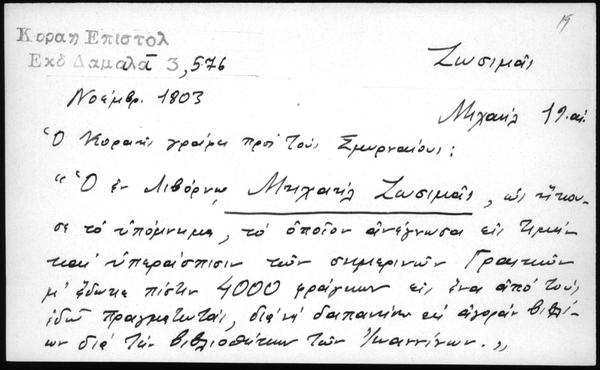 19
Κοραῆ Επιστολ
Εκδ Δαμαλᾶ 3,576
Ζωσιμᾶς
Νοέμβρ. 1803
Μιχαήλ 19. αἰ.
Ὁ Κοραῆς γράφει πρὸς τοὺς Σμυρναίους:
"Ὁ ἐν Λιβόρνῳ Μιχαὴλ Ζωσιμᾶς, ὡς ἤκου-
σε τὸ ὑπόμνημα, τὸ ὁποῖον ἀνέγνωσα εἰς τιμὴν
καὶ ὑπεράσπισιν τῶν σημερινῶν Γραικῶν
μ' ἔδωκε πίστιν 4000 φράγκων εἰς ἕνα ἀπὸ τοὺς
ἐδῶ πραγματευτάς, διὰ νὰ δαπανήσω εἰς ἀγορὰν βιβλί-
ων διὰ τὴν βιβλιοθήκην τῶν Ἰωαννίνων.„